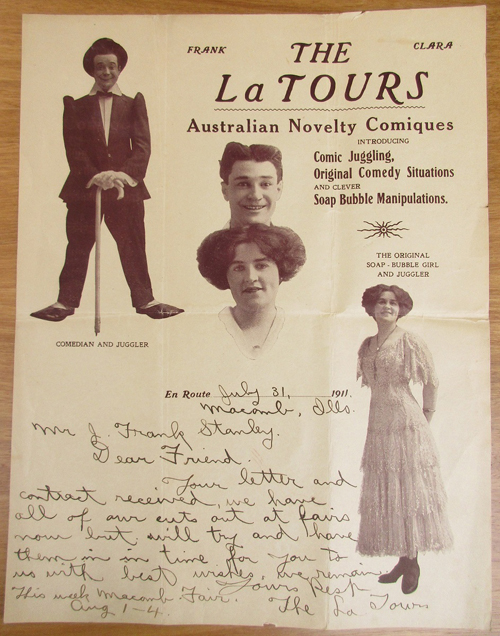 FRANK
CLARA
THE
La TOURS
Australian Novelty Comiques
INTRODUCING
Comic Juggling,
Original Comedy Situations
AND CLEVER
Soap Bubble Manipulations.
THE ORIGINAL
SOAP-BUBBLE GIRL
AND JUGGLER
COMEDIAN AND JUGGLER
En Route July 31, 1911.
Macomb, Ills.
Mr J. Frank Stanley.
Dear Friend.
Your letter and
contract received, we have
all of our cuts out at fairs
now but will try and have
them in in time for you to
us with best wishes, we remain.
Yours Resp
This week Macomb Fair. The La Tours
Aug 1-4.